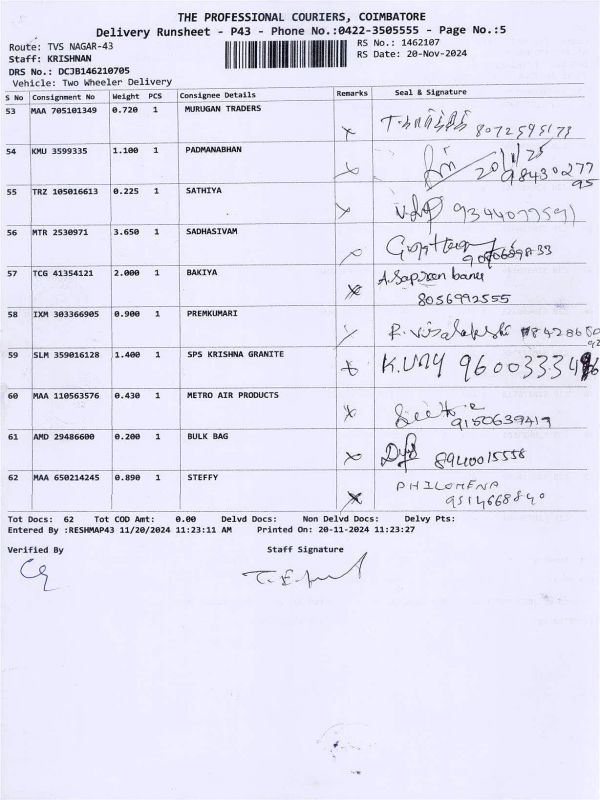 THE PROFESSIONAL COURIERS, COIMBATORE
Delivery Runsheet - P43 - Phone No.:0422-3505555 - Page No.:5
Route: TVS NAGAR-43
RS No.: 1462107
Staff: KRISHNAN
RS Date: 20-Nov-2024
DRS No.: DCJB146210705
Vehicle: Two Wheeler Delivery
S No Consignment No Weight PCS Consignee Details Remarks Seal & Signature
53 MAA 705101349 0.720 1 MURUGAN TRADERS
8072595173
54 KMU 3599335 1.100 1 PADMANABHAN
55 TRZ 105016613 0.225 1 SATHIYA
9344077591
56 MTR 2530971 3.650 1 SADHASIVAM
57 TCG 41354121 2.000 1 BAKIYA
8056992555
58 IXM 303366905 0.900 1 PREMKUMARI
59 SLM 359016128 1.400 1 SPS KRISHNA GRANITE
60 MAA 110563576 0.430 1 METRO AIR PRODUCTS
9150639419
61 AMD 29486600 0.200 1 BULK BAG
8940015558
62 MAA 650214245 0.890 1 STEFFY PHILOMENA
9514668840
Tot Docs: 62 Tot COD Amt: 0.00 Delvd Docs: Non Delvd Docs: Delvy Pts:
Entered By :RESHMAP43 11/20/2024 11:23:11 AM Printed On: 20-11-2024 11:23:27
Verified By Staff Signature